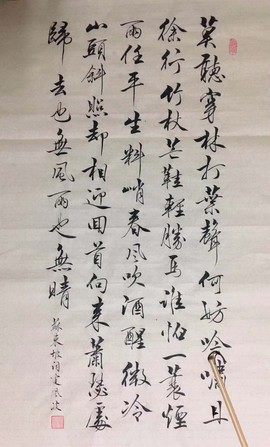 莫聽穿林打葉聲何妨吟嘯且
徐行竹杖芒鞋輕勝馬誰怕一蓑煙
雨任平生料峭春風吹酒醒微冷
山頭斜照却相迎回首向來蕭瑟處
歸去也無風雨也無晴
蘇東坡詞定風波